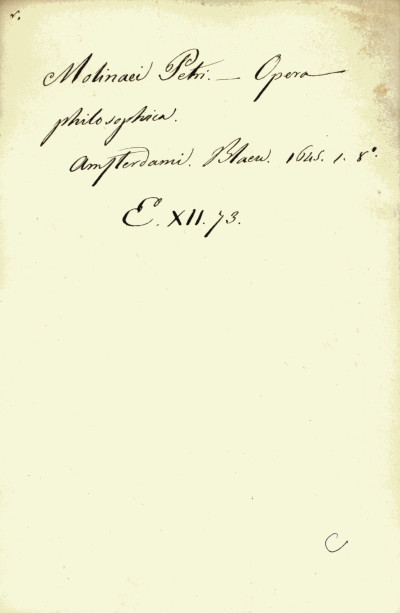 r.
Molinaei Petri. — Opera
philosophica.
Amsterdami. Blaeu. 1645. 1. 8°.
E. XII. 73.
C